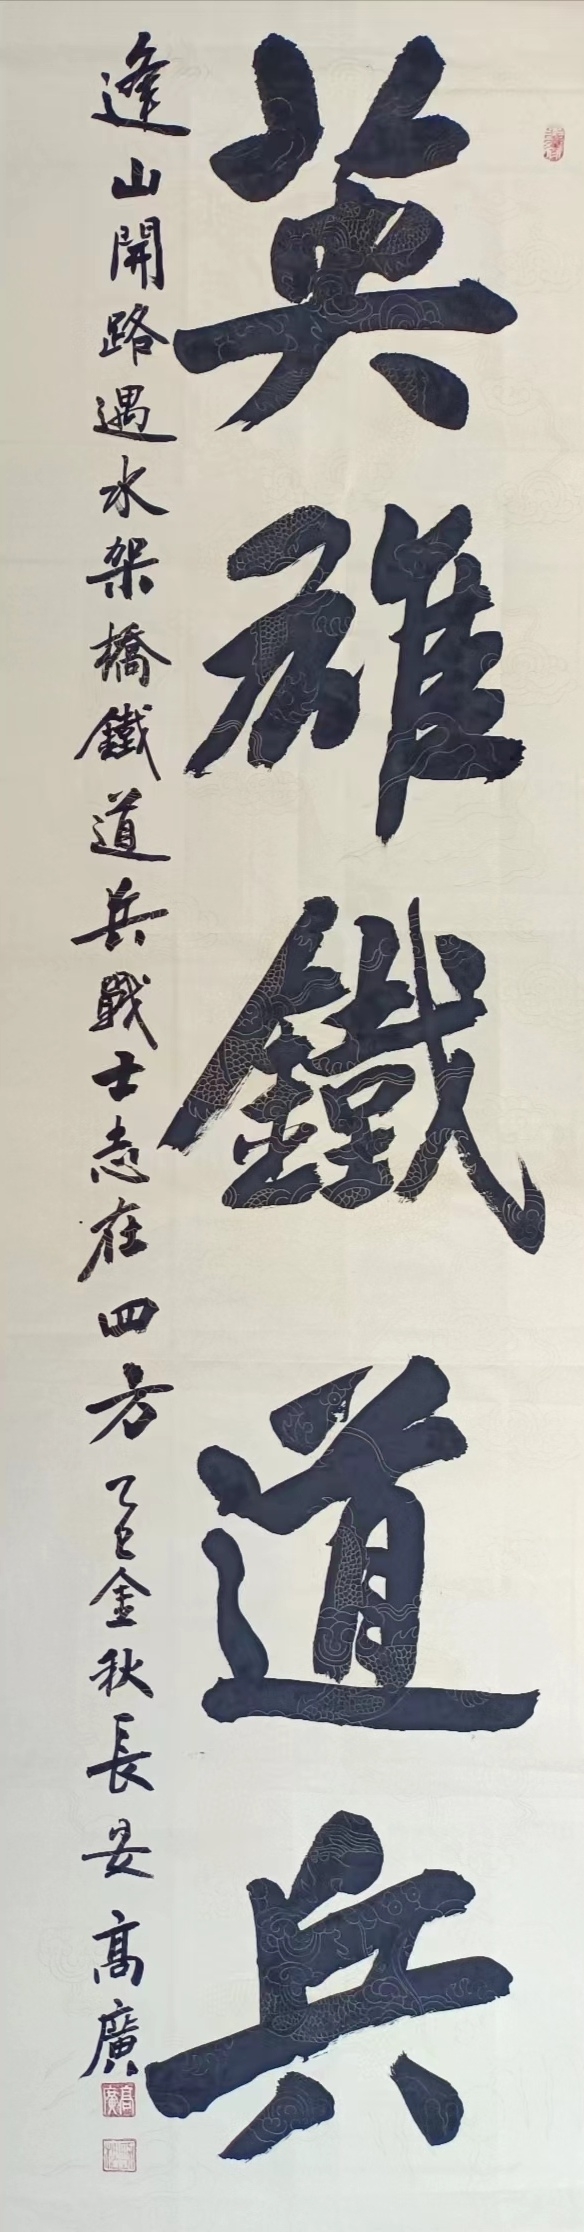 英雄鐵道兵
逢山開路遇水架橋鐵道兵戰士志在四方 乙巳金秋長安 高廣
高廣